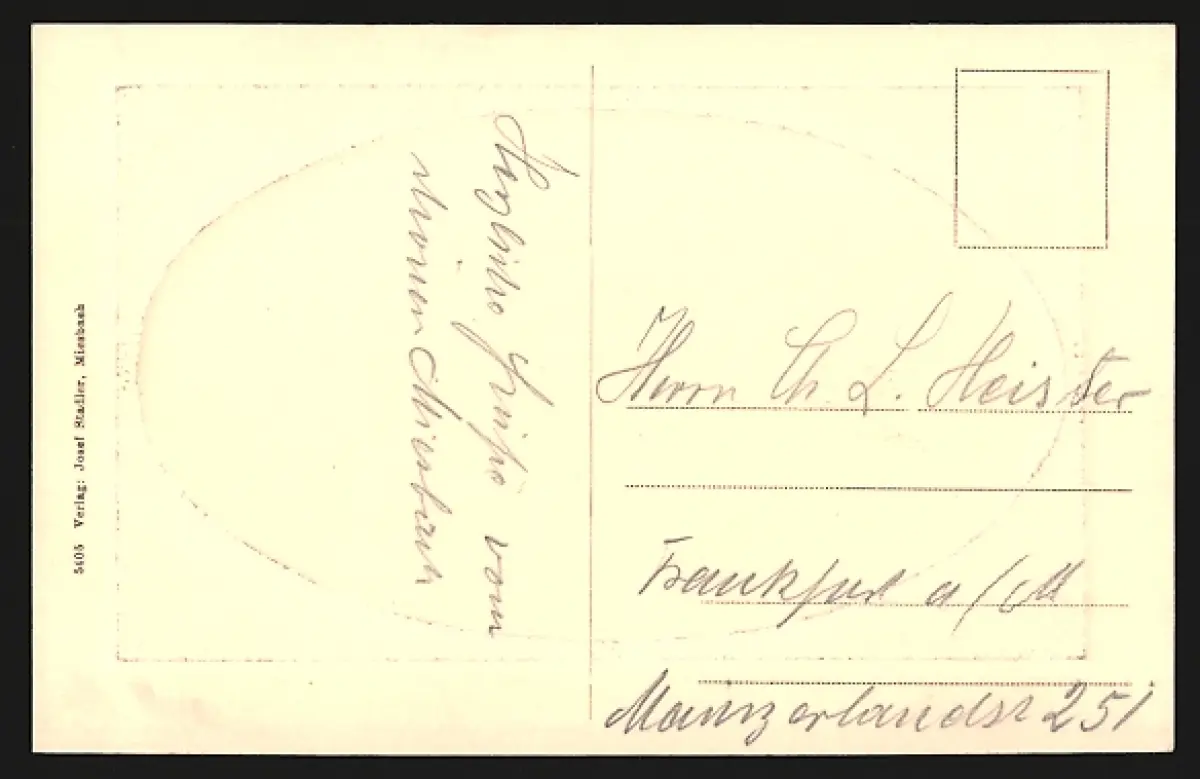 Herzliche Grüße vom
schönen Miesbach
Herrn Ch. L. Heister
Frankfurt a/M
Mainzerlandst 251
5605 Verlag: Josef Stadler, Miesbach